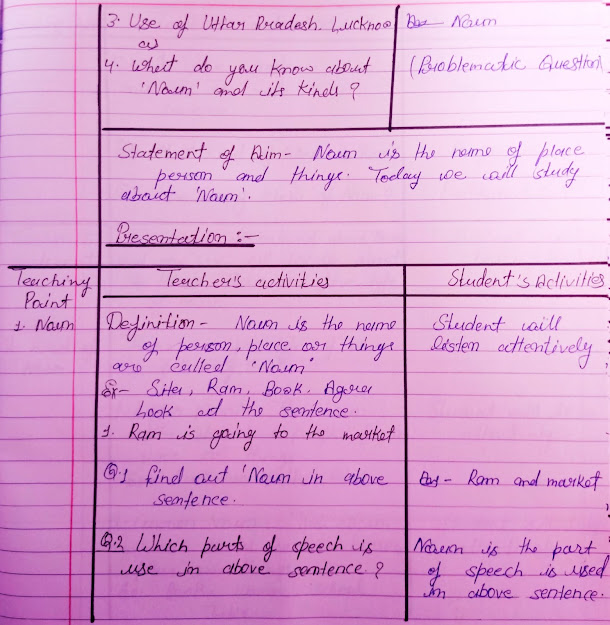 3. Use of Uttar Pradesh. Lucknow Noun
as
4. What do you know about (Problematic Question)
'Noun' and its kinds?
Statement of Aim- Noun is the name of place
person and things. Today we will study
about 'Noun'.
Presentation :-
Teaching Teacher's activities Student's Activities
Point
1. Noun Definition - Noun is the name Student will
of person, place or things listen attentively
are called 'Noun'
Ex- Sita, Ram, Book, Agra
Look at the sentence.
1. Ram is going to the market
Q.1 find out 'Noun in above Ans - Ram and market
sentence.
Q.2 Which parts of speech is Noun is the part
use in above sentence? of speech is used
in above sentence.